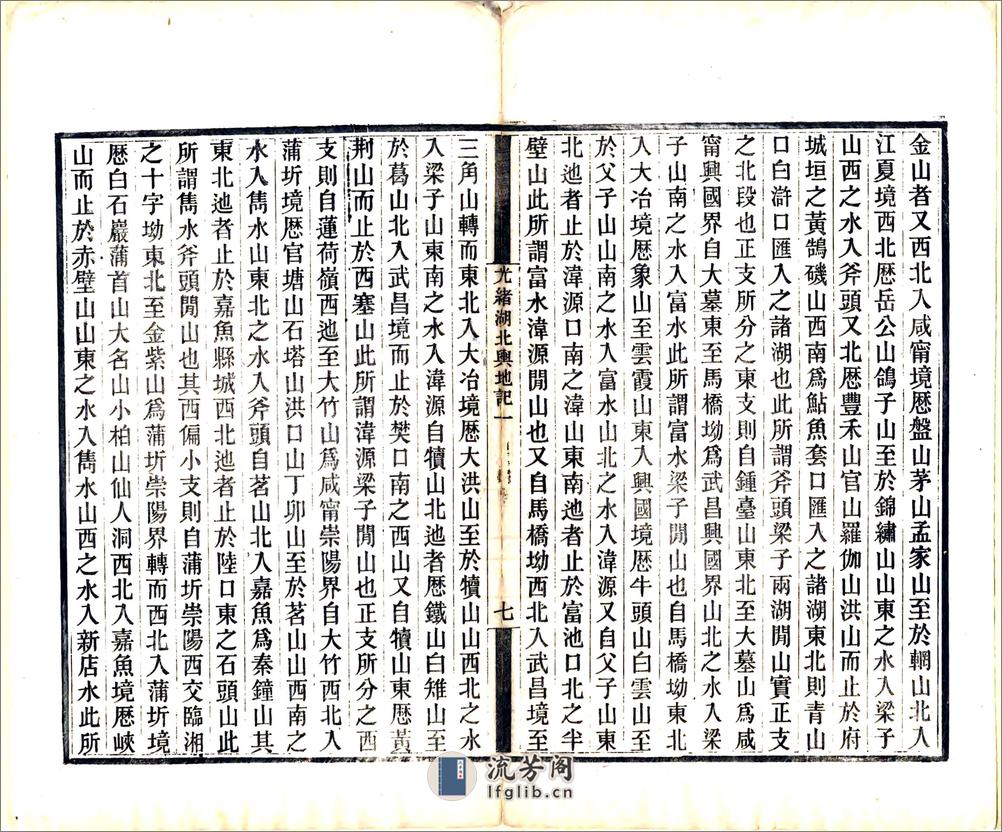 金山者又西北入咸甯境歷盤山茅山孟家山至於輞山北入
江夏境西北歷岳公山鴿子山至於錦繡山山東之水入梁子
山西之水入斧頭又北歷豐禾山官山羅伽山洪山而止於府
城垣之黃鵠磯山西南爲鮎魚套口匯入之諸湖東北則青山
口曰滸口匯入之諸湖也此所謂斧頭梁子兩湖閒山實正支
之北段也正支所分之東支則自鍾臺山東北至大墓山爲咸
甯興國界自大墓東至馬橋坳爲武昌興國界山北之水入梁
子山南之水入富水此所謂富水梁子閒山也自馬橋坳東北
入大冶境歷象山至雲霞山東入興國境歷牛頭山白雲山至
於父子山山南之水入富水山北之水入湋源又自父子山東
北迆者止於湋源口南之湋山東南迆者止於富池口北之半
壁山此所謂富水湋源閒山也又自馬橋坳西北入武昌境至
光緒湖北輿地記一
七
三角山轉而東北入大冶境歷大洪山至於犢山山西北之水
入梁子山東南之水入湋源自犢山北迆者歷鐵山白雉山至
於葛山北入武昌境而止於樊口南之西山又自犢山東歷黃
荆山而止於西塞山此所謂湋源梁子閒山也正支所分之西
支則自蓮荷嶺西迆至大竹山爲咸甯崇陽界自大竹西北入
蒲圻境歷官塘山石塔山洪口山丁卯山至於茗山山西南之
水入雋水山東北之水入斧頭自茗山北入嘉魚爲秦鐘山其
東北迆者止於嘉魚縣城西北迆者止於陸口東之石頭山此
所謂雋水斧頭閒山也其西偏小支則自蒲圻崇陽西交臨湘
之十字坳東北至金紫山爲蒲圻崇陽界轉而西北入蒲圻境
歷白石巖蒲首山大名山小柏山仙人洞西北入嘉魚境歷峽
山而止於赤壁山山東之水入雋水山西之水入新店水此所
流芳阁
lfglib.cn